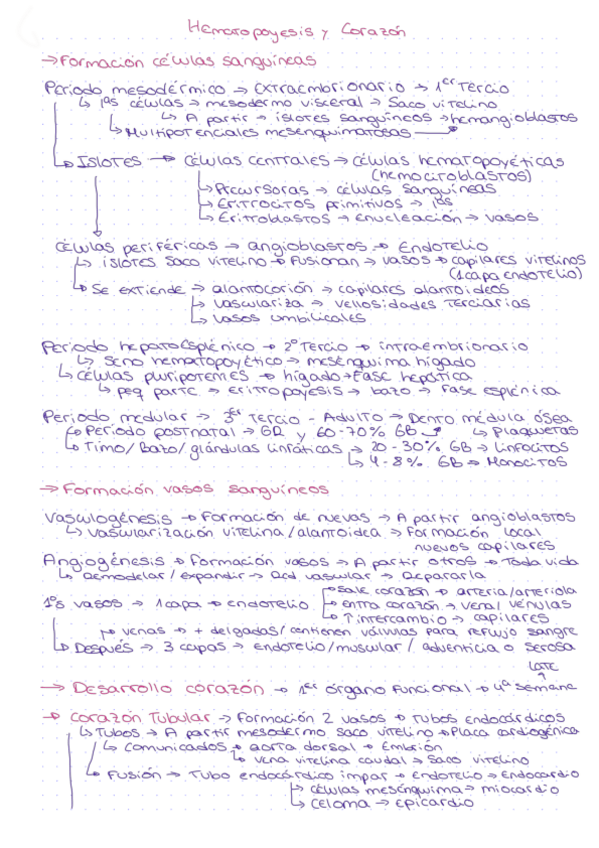 Hematopoyesis y Corazón
→ Formación células sanguíneas
Periodo mesodérmico → Extraembrionario → 1er Tercio
↳ 1as células → mesodermo visceral → Saco vitelino
↳ A partir → islotes sanguíneos → hemangioblastos
↳ Multipotenciales mesenquimatosas
↳ Islotes → Células centrales → células hematopoyéticas
(hemocitoblastos)
↳ Precursoras → células sanguíneas
↳ Eritrocitos primitivos → 1as
↳ Eritroblastos → Enucleación → vasos
Células periféricas → angioblastos → Endotelio
↳ islotes saco vitelino → Fusionan → vasos → capilares vitelinos
(1 capa endotelio)
↳ Se extiende → alantocorión → capilares alantoideos
↳ vasculariza → vellosidades terciarias
↳ vasos umbilicales
Periodo hepatoesplénico → 2º Tercio → intraembrionario
↳ Seno hematopoyético → mesénquima hígado
↳ Células pluripotentes → hígado → Fase hepática
↳ peq parte → Eritropoyesis → bazo → Fase esplénica
Periodo medular → 3er Tercio - Adulto → Dentro médula ósea
↳ Periodo postnatal → GR y 60-70% GB ↳ Plaquetas
↳ Timo/Bazo/glándulas linfáticas → 20-30% GB → Linfocitos
↳ 4-8% GB → Monocitos
→ Formación vasos sanguíneos
Vasculogénesis → Formación de nuevas → A partir angioblastos
↳ vascularización vitelina/alantoidea → Formación local
nuevos capilares
Angiogénesis → Formación vasos → A partir otros → Toda vida
↳ Remodelar/expandir → Red vascular → Repararla
1os vasos → 1 capa → endotelio → Sale corazón → arteria/arteriola
→ Entra corazón → vena/vénulas
→ ↑ intercambio → capilares
↳ venas → + delgadas/contienen válvulas para reflujo sangre
↳ Después → 3 capas → endotelio/muscular/adventicia o serosa
late
→ Desarrollo corazón → 1er órgano Funcional → 4ª semana
→ Corazón Tubular → Formación 2 vasos → Tubos endocárdicos
↳ Tubos → A partir mesodermo saco vitelino → Placa cardiogénica
↳ Comunicados → aorta dorsal → Embrión
↳ vena vitelina caudal → Saco vitelino
↳ Fusión → Tubo endocárdico impar → Endotelio → Endocardio
↳ Células mesénquima → miocardio
↳ Celoma → Epicardio